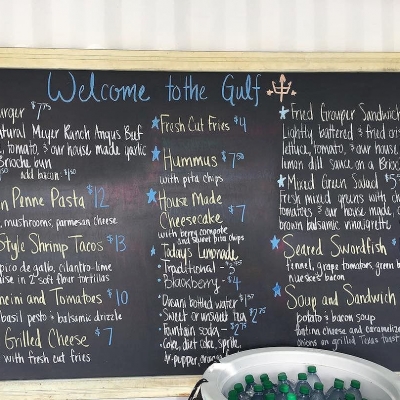 Welcome to the Gulf
urger $7.75
atural Meyer Ranch Angus Beef
, tomato, & our house made garlic
Brioche bun
add bacon $1.50
n Penne Pasta $12
, mushrooms, parmesan cheese
Style Shrimp Tacos $13
pico de gallo, cilantro-lime
aise in 2 soft flour tortillas
ncini and Tomatoes $10
basil pesto & balsamic drizzle
Grilled Cheese $7
with fresh cut fries
Fresh Cut Fries $4
Hummus $7.50
with pita chips
House Made
Cheesecake $7
with berry compote
and sweet pita chips
Today's Lemonade
- Traditional - $3.75
- Blackberry - $4
- Dasani bottled water $1.50
- Sweet or unsweet tea $2.75
- Fountain soda - $2.75
- Coke, diet coke, sprite,
dr. pepper, orange
Fried Grouper Sandwich
Lightly battered & fried
lettuce, tomato, & our house
lemon dill sauce on a Brio
Mixed Green Salad $5
Fresh mixed greens with ch
tomatoes & our house made,
brown balsamic vinaigrette
Seared Swordfish $
fennel, grape tomatoes, green b
& bacon
Soup and Sandwich
potato & bacon soup
fontina cheese and carameliz
onions on grilled Texas toast